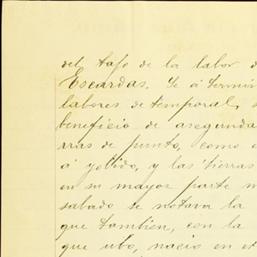 del tajo de la labor d
Escardas. Se á termin
labores de temporal,
beneficio de asegunda
rras de punto, como
á pedido, y las tierras
en su mayor parte
sabado se notava la
que tambien, con la
que ubo, nacio en el